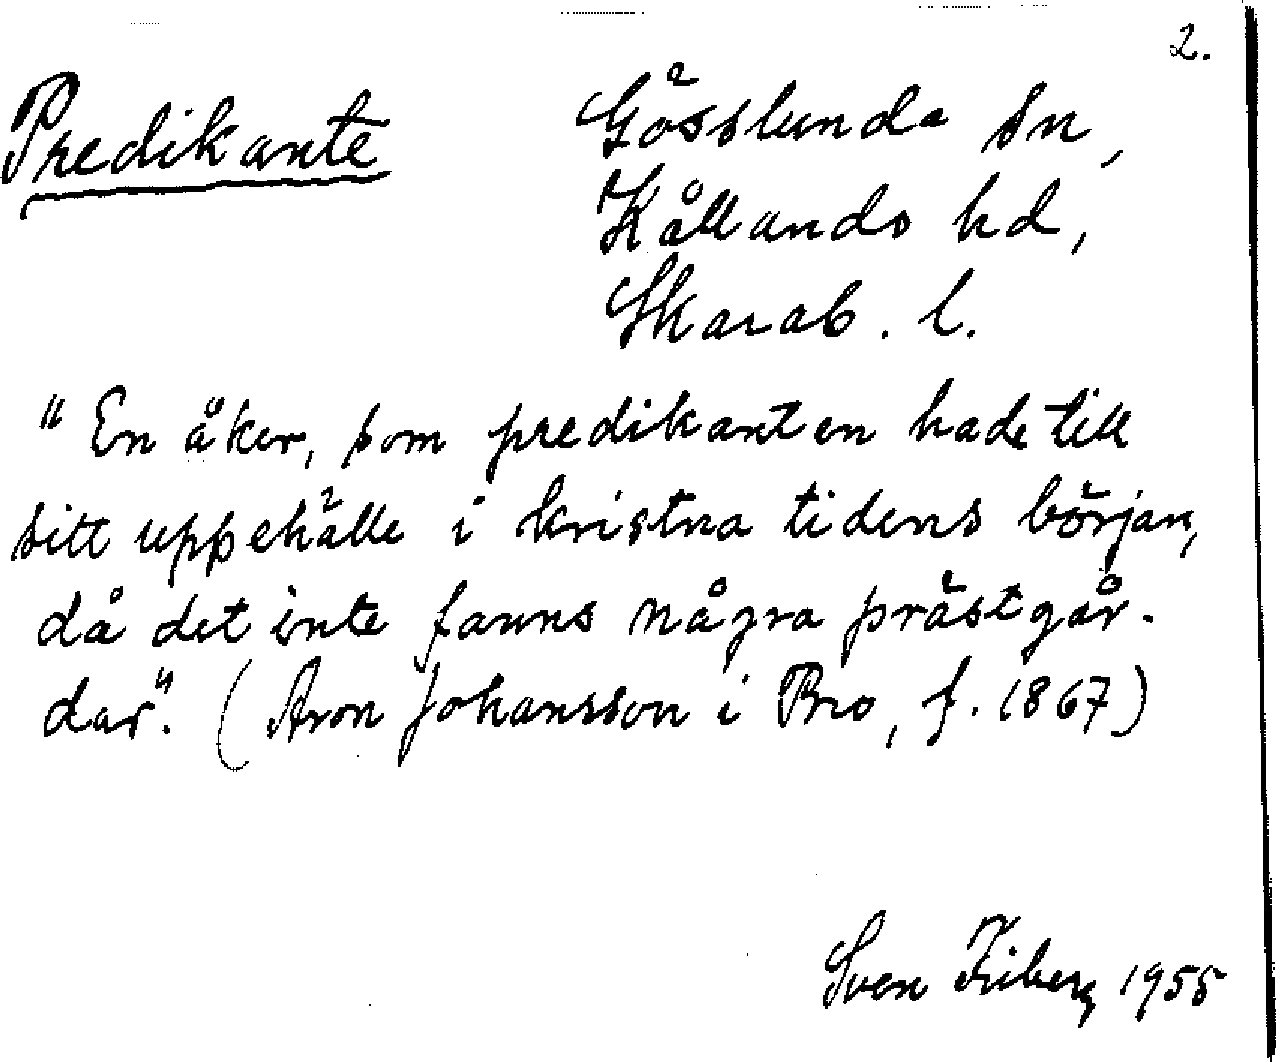 2.
Predikante
Gösslunda sn,
Kållands hd,
Skarab. l.
"En åker, som predikanten hade till
sitt uppehälle i kristna tidens början,
då det inte fanns några prästgår-
dar". (Aron Johansson i Bro, f. 1867)
Sven Friberg 1955